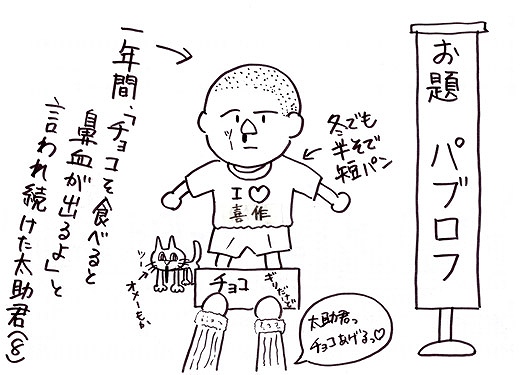 お題 パブロフ
一年間、「チョコを食べると
鼻血が出るよ」と
言われ続けた太助君(8)
冬でも
半そで
短パン
I ♡
喜作
ツー
ツー
オメーもか
チョコ
ギリだけど
太助君っ
チョコあげるっ♡